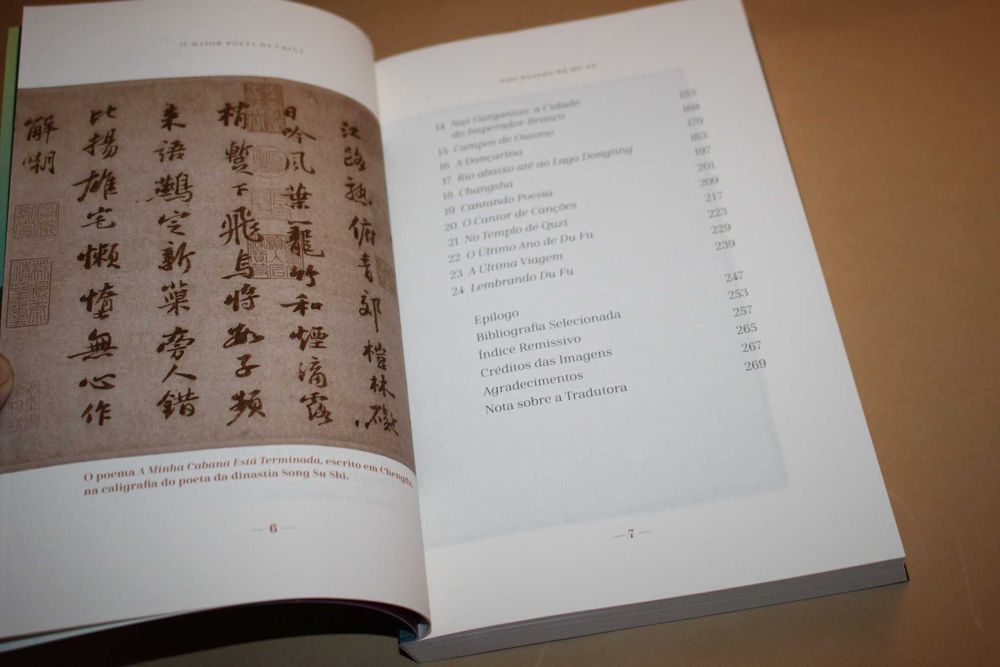 O MAIOR POETA DA CHINA
江路熟俯青郊榿林礙
日吟風葉籠竹和煙滴露
梢暫下飛烏將數子頻
来語鷰定新巢旁人錯
比揚雄宅懶惰無心作
解嘲
O poema A Minha Cabana Está Terminada, escrito em Chengdu,
na caligrafia do poeta da dinastia Song Su Shi.
— 6 —
NOS PASSOS DE DU FU
14 Nas Gargantas: a Cidade
do Imperador Branco 153
15 Campos de Outono 169
16 A Dançarina 179
17 Rio abaixo até ao Lago Dongting 183
18 Changsha 197
19 Cantando Poesia 201
20 O Cantor de Canções 209
21 No Templo de Quzi 217
22 O Último Ano de Du Fu 223
23 A Última Viagem 229
24 Lembrando Du Fu 239
Epílogo 247
Bibliografia Selecionada 253
Índice Remissivo 257
Créditos das Imagens 265
Agradecimentos 267
Nota sobre a Tradutora 269
— 7 —